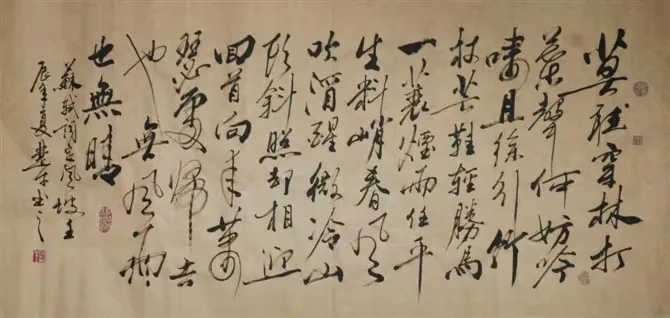 莫聽穿林打
葉聲何妨吟
嘯且徐行竹
杖芒鞋輕勝馬
一蓑煙雨任平
生料峭春風
吹酒醒微冷山
頭斜照却相迎
回首向來蕭
瑟處歸去
也無風雨
也無晴
蘇軾詞定風坡壬
辰年夏書之